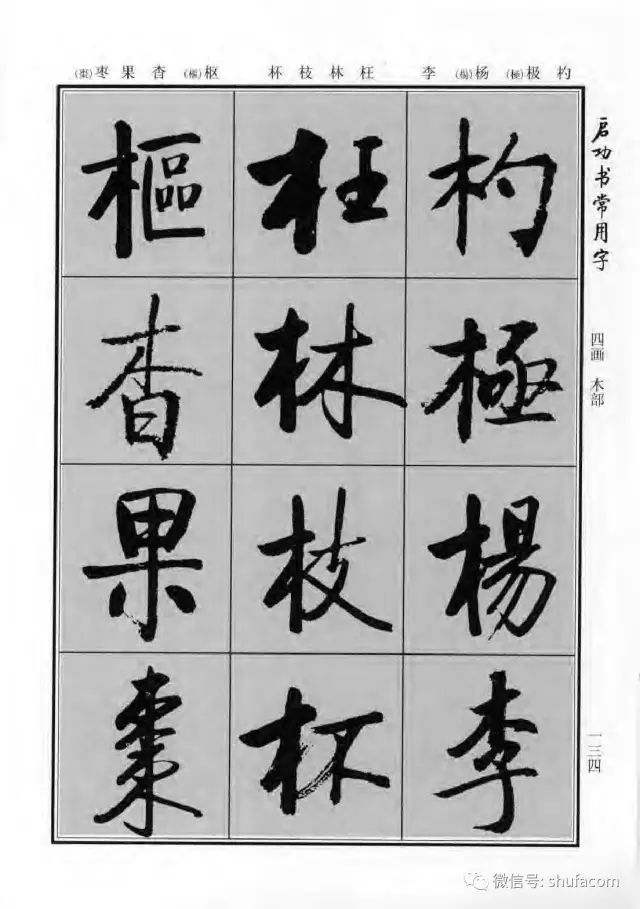 杓极(極)杨(楊)李 枉林枝杯 枢(樞)杳果枣(棗)
启功书常用字
四画 木部
一三四
杓極楊李
枉林枝杯
樞杳果棗
微信号: shufacom